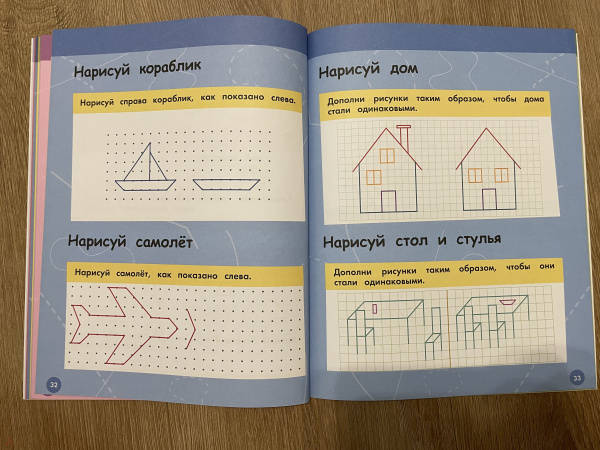 Нарисуй кораблик
Нарисуй справа кораблик, как показано слева.
Нарисуй самолёт
Нарисуй самолёт, как показано слева.
32
Нарисуй дом
Дополни рисунки таким образом, чтобы дома
стали одинаковыми.
Нарисуй стол и стулья
Дополни рисунки таким образом, чтобы они
стали одинаковыми.
33